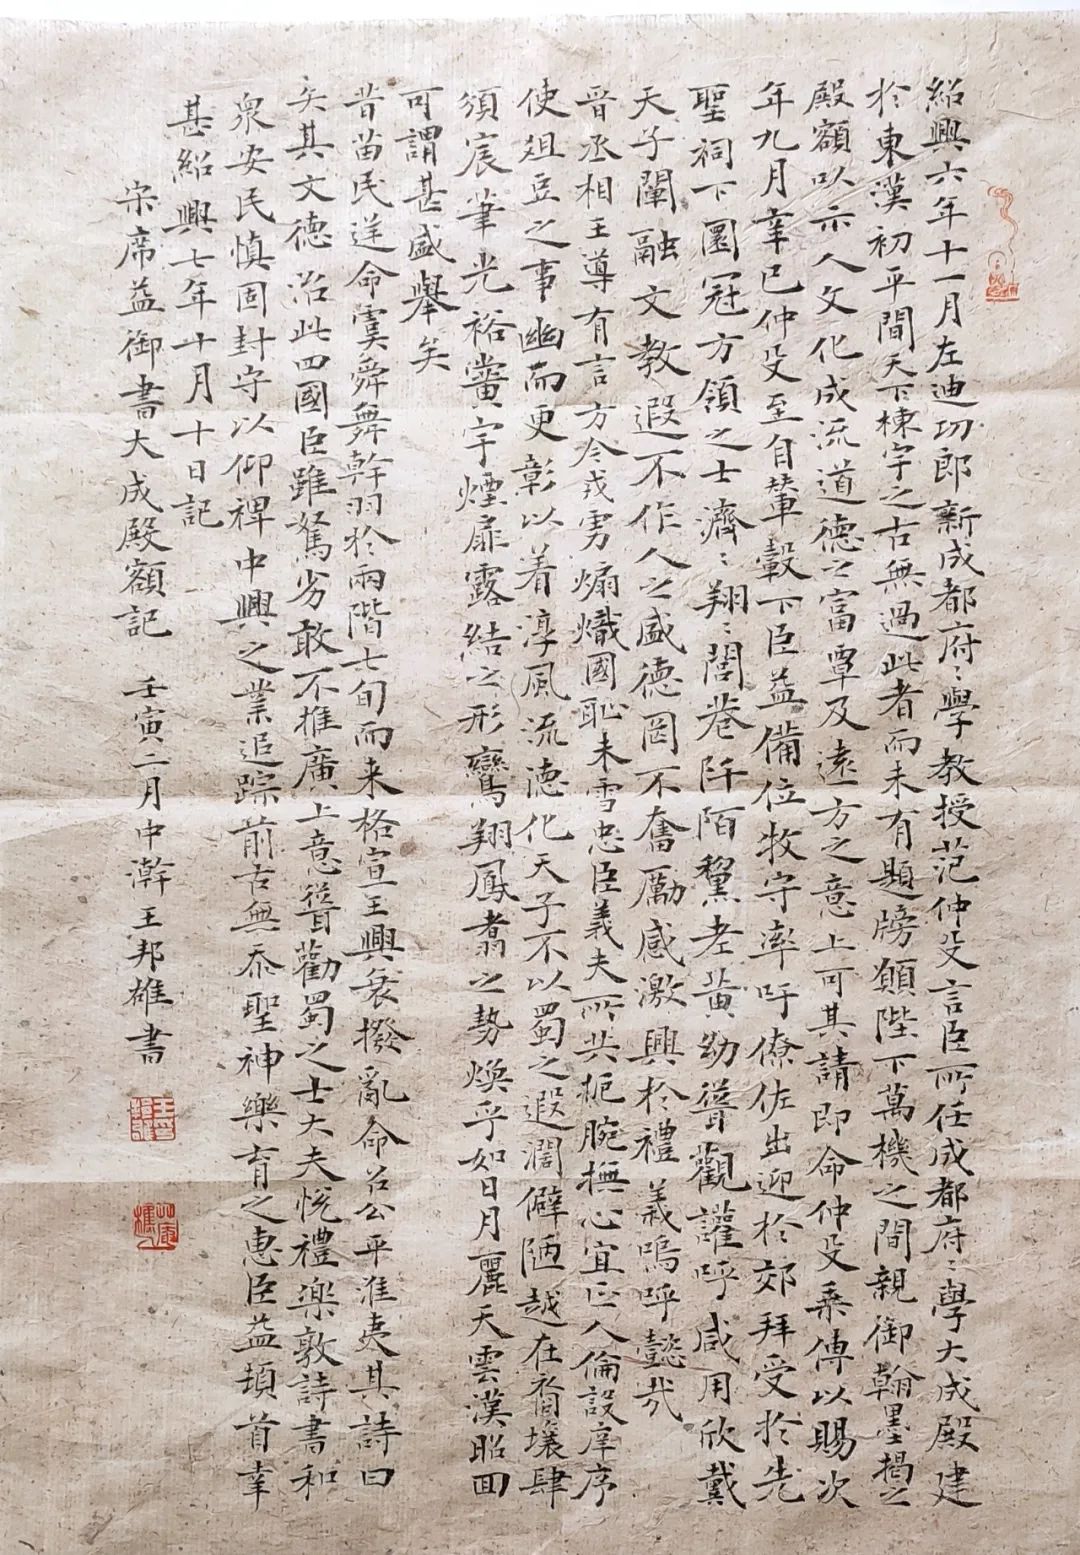 紹興六年十一月左迪功郎新成都府〻學教授范仲殳言臣所任成都府〻學大成殿建
於東漢初平間天下棟宇之古無過此者而未有題牓願陛下萬機之間親御翰墨揭之
殿額以示人文化成流道德之富覃及遠方之意上可其請即命仲殳乘傳以賜次
年九月辛巳仲殳至自輦轂下臣益備位牧守率吁僚佐出迎於郊拜受於先
聖祠下圜冠方領之士濟〻翔〻閭巷阡陌黧老黃幼聳觀讙呼咸用欣戴
天子闡融文教遐不作人之盛德罔不奮厲感激興於禮義嗚呼懿哉
晉丞相王導有言方今戎虜煽熾國恥未雪忠臣義夫所共扼腕撫心宜正人倫設庠序
使俎豆之事幽而更彰以着淳風流德化天子不以蜀之遐濶僻陋越在裔壤肆
須宸筆光裕黌宇煙霏露結之形鸞翔鳳翥之勢煥乎如日月麗天雲漢昭回
可謂甚盛舉矣
昔苗民逆命虞舜舞幹羽於兩階七旬而来格宣王興衰撥亂命召公平淮夷其詩曰
矢其文德洽此四國臣雖駑劣敢不推廣上意聳勸蜀之士大夫悅禮樂敦詩書和
衆安民慎固封守以仰裨中興之業追踪前古無忝聖神樂育之惠臣益頓首幸
甚紹興七年十月十日記
宋席益御書大成殿額記 壬寅二月中澣王邦雄書